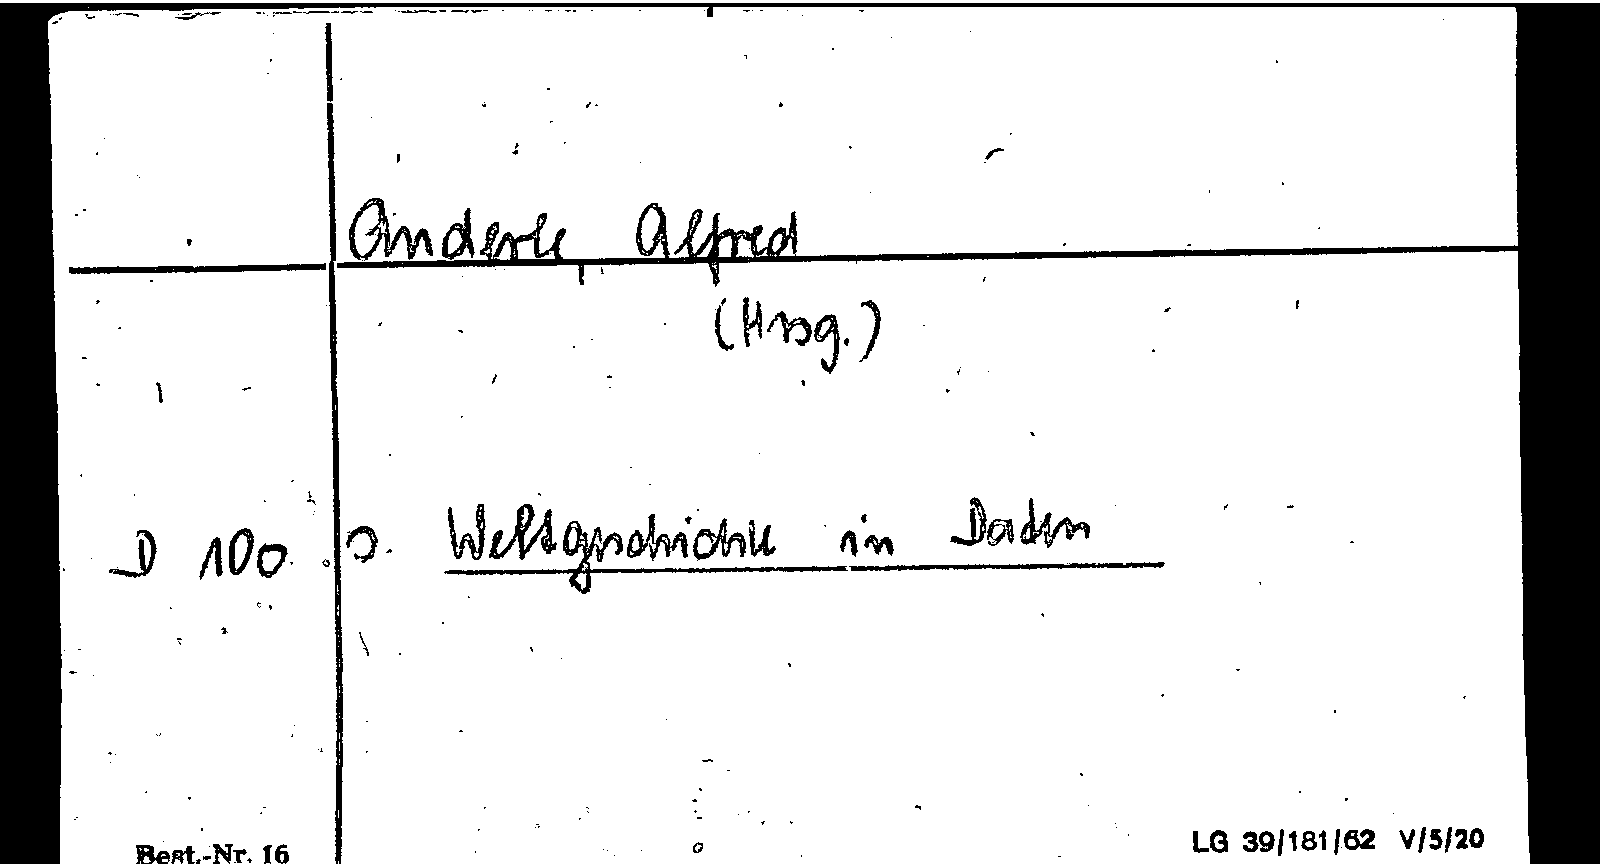 Anderle, Alfred
(Hrsg.)
D 100 s. Weltgeschichte in Daten
Best.-Nr. 16 LG 39/181/62 V/5/20